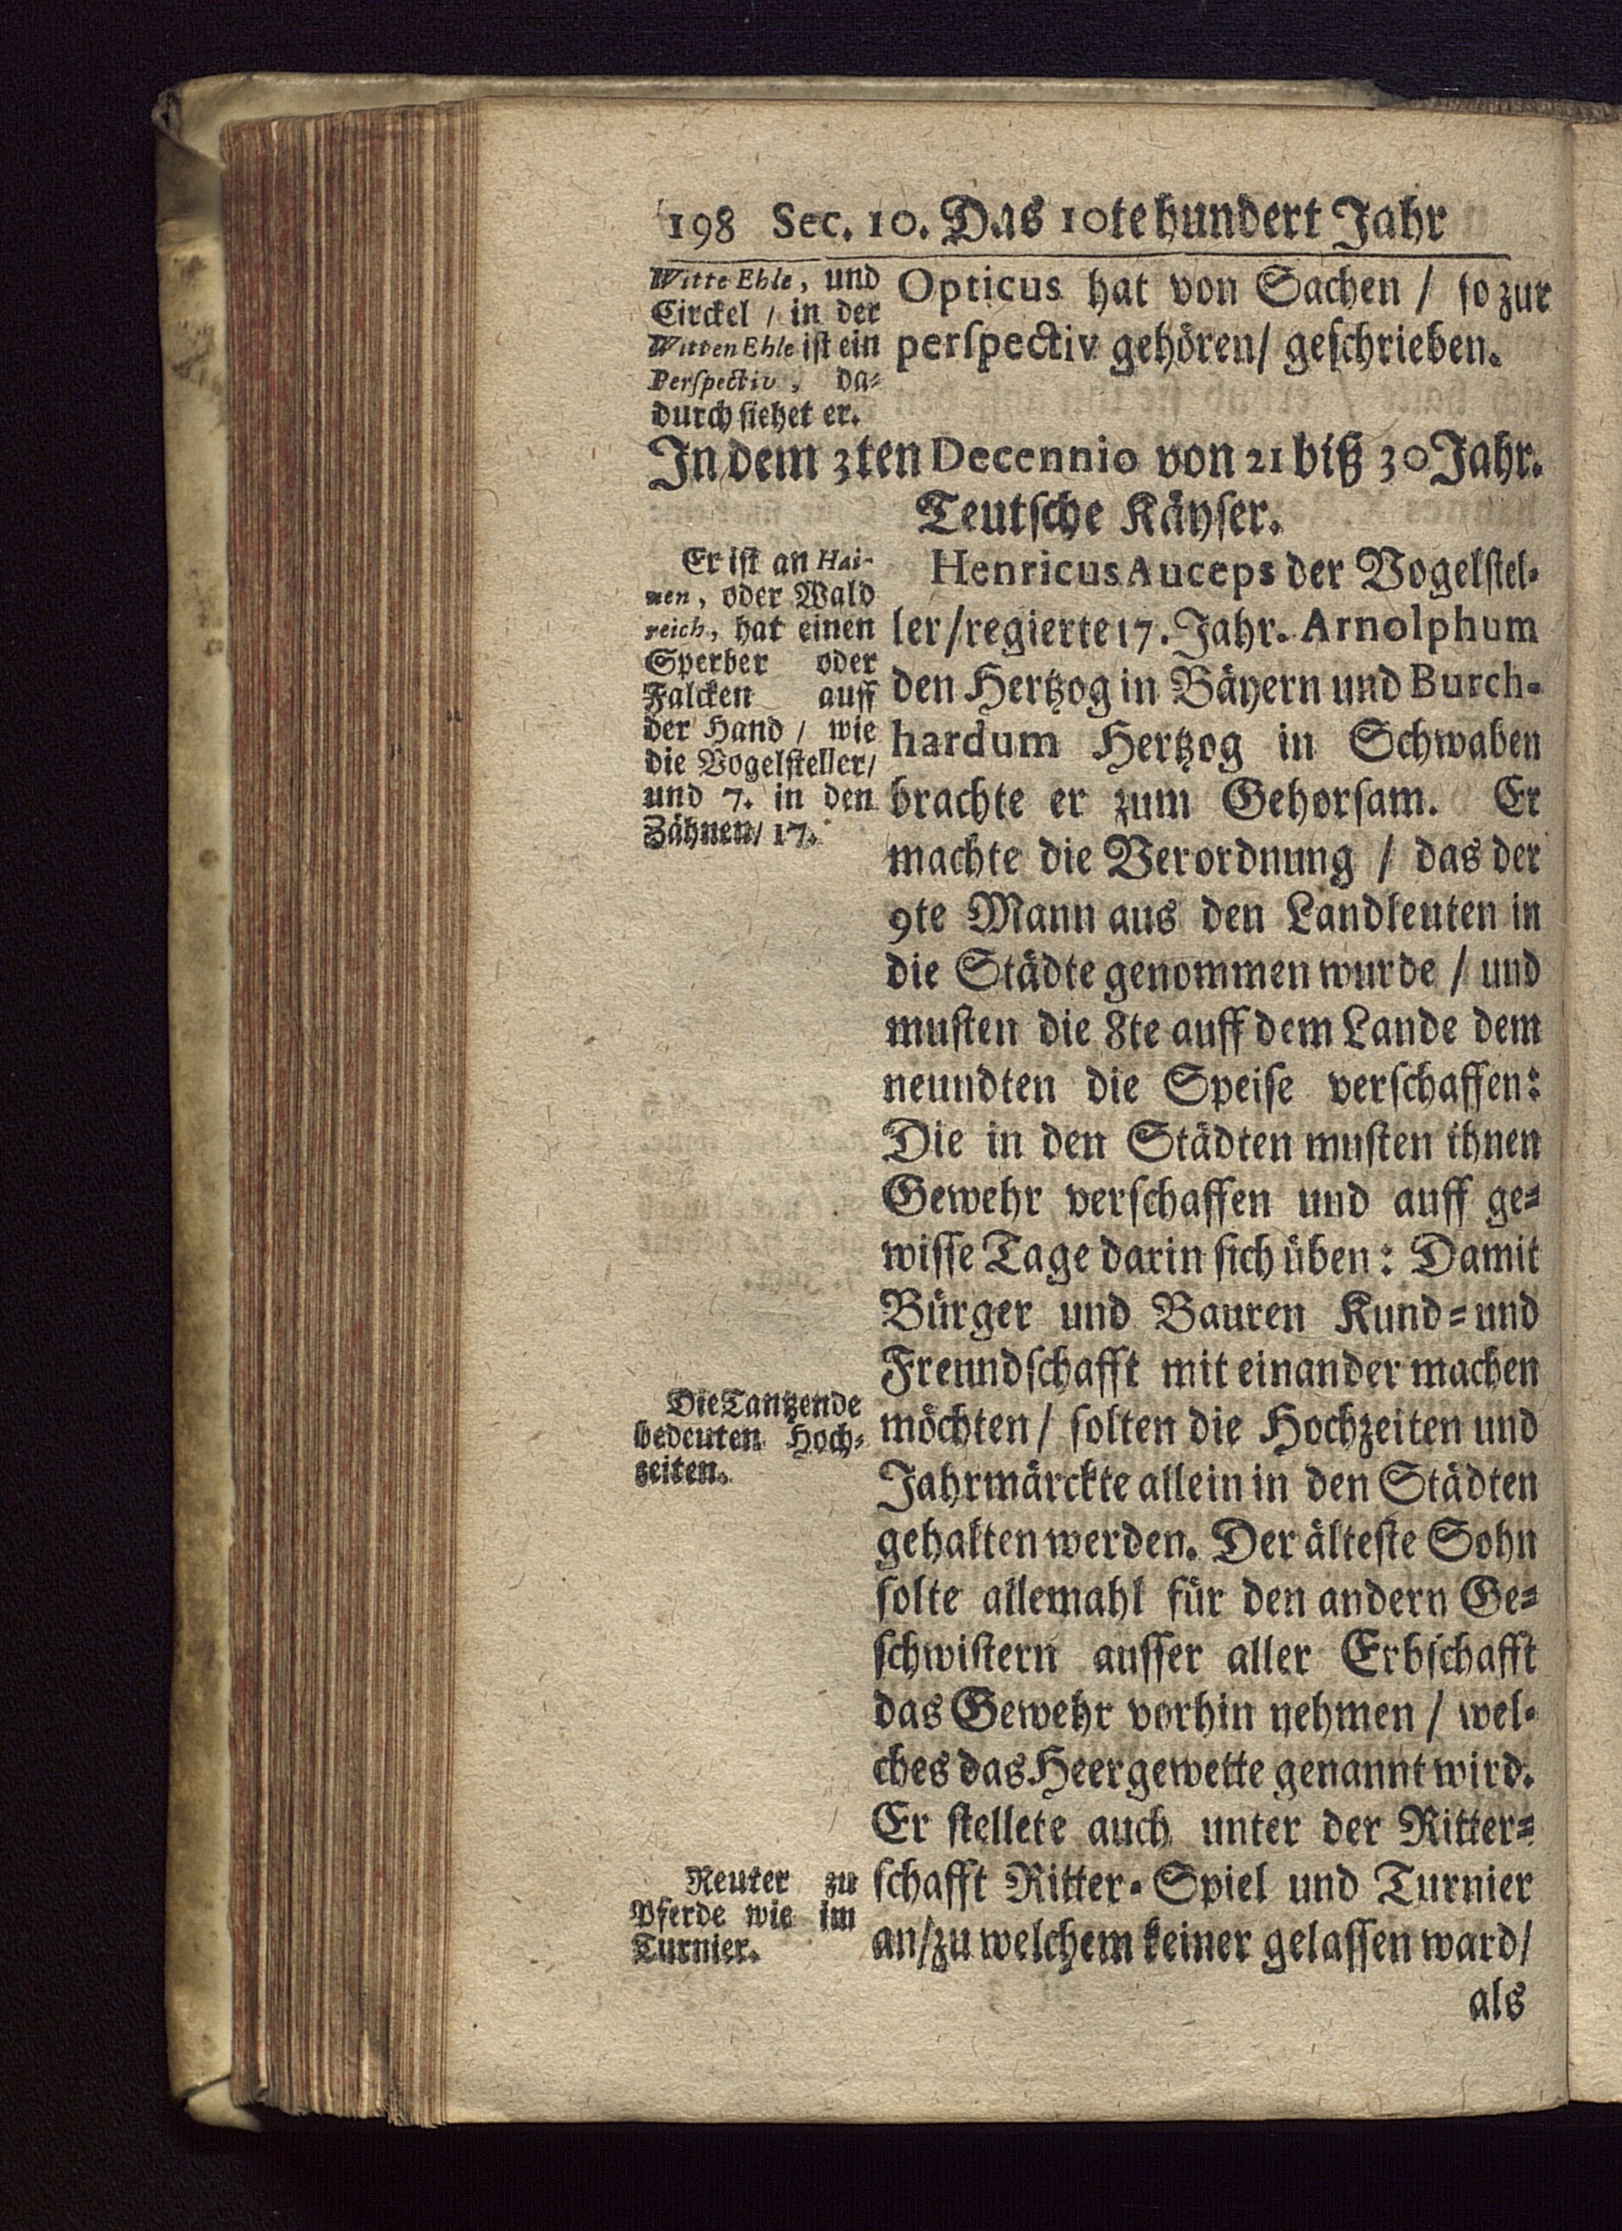 198 Sec. 10. Das 10te hundert Jahr
Witte Ehle, und
Circkel / in der
Witten Ehle ist ein
Perspectiv, da-
durch siehet er.
Opticus hat von Sachen / so zur
perspectiv gehören / geschrieben.
In dem 3ten Decennio von 21 biß 30 Jahr.
Teutsche Käyser.
Er ist an Hai-
nen, oder Wald
reich, hat einen
Sperber oder
Falcken auff
der Hand / wie
die Vogelsteller /
und 7. in den
Zähnen / 17.
Henricus Auceps der Vogelstel-
ler / regierte 17. Jahr. Arnolphum
den Hertzog in Bäyern und Burch-
hardum Hertzog in Schwaben
brachte er zum Gehorsam. Er
machte die Verordnung / das der
9te Mann aus den Landleuten in
die Städte genommen wurde / und
musten die 8te auff dem Lande dem
neundten die Speise verschaffen:
Die in den Städten musten ihnen
Gewehr verschaffen und auff ge-
wisse Tage darin sich üben: Damit
Bürger und Bauren Kund- und
Freundschafft mit einander machen
Die Tantzende
bedeuten Hoch-
zeiten.
möchten / solten die Hochzeiten und
Jahrmärckte allein in den Städten
gehalten werden. Der älteste Sohn
solte allemahl für den andern Ge-
schwistern ausser aller Erbschafft
das Gewehr vorhin nehmen / wel-
ches das Heergewette genannt wird.
Er stellete auch unter der Ritter-
Reuter zu
Pferde wie im
Turnier.
schafft Ritter-Spiel und Turnier
an / zu welchem keiner gelassen ward /
als